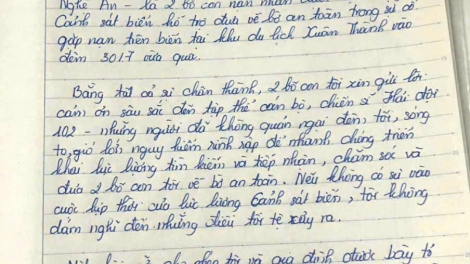 Nghệ An - là 2 bố con nạn nhân được
Cảnh sát biển hỗ trợ đưa về bờ an toàn trong sự cố
gặp nạn trên biển tại khu du lịch Xuân Thành vào
đêm 30.7 vừa qua.
Bằng tất cả sự chân thành, 2 bố con tôi xin gửi lời
cám ơn sâu sắc đến tập thể cán bộ, chiến sĩ Hải đội
102 - những người đã không quản ngại đêm tối, sóng
to, gió lớn, nguy hiểm rình rập để nhanh chóng triển
khai lực lượng tìm kiếm và tiếp nhận, chăm sóc và
đưa 2 bố con tôi về bờ an toàn. Nếu không có sự vào
cuộc kịp thời của lực lượng Cảnh sát biển, tôi không
dám nghĩ đến những điều tồi tệ xảy ra.
Một lần cho phép tôi và gia đình được bày tỏ